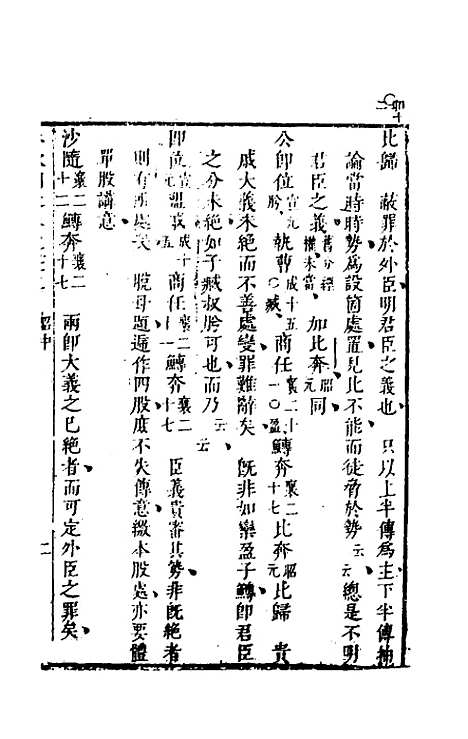 比歸　敝罪於外臣明君臣之義也　只以上半傳為主下半傳抽
論當時時勢為設箇處置見比不能而徒脅於勢云云總是不明
君臣之義　加比奔昭元同
公卽位宣元　執曹成十五○臧　商任襄二十一○盈　鱄奔襄二十七　比奔昭元　比歸　貴
戚大義未絕而不善處變罪難辭矣　旣非如欒盈子鱄卽君臣
之分未絕如子臧叔肸可也而乃云云
卽位宣　盟戚成十五　商任襄二十一　鱄奔襄二十七　臣義貴審其勢非旣絕者
則有　脫母題遞作四股庶不失傳意繳本股處亦要體
單股講意
沙隨襄二十二　鱄奔襄二十七　兩卽大義之已絕者而可定外臣之罪矣